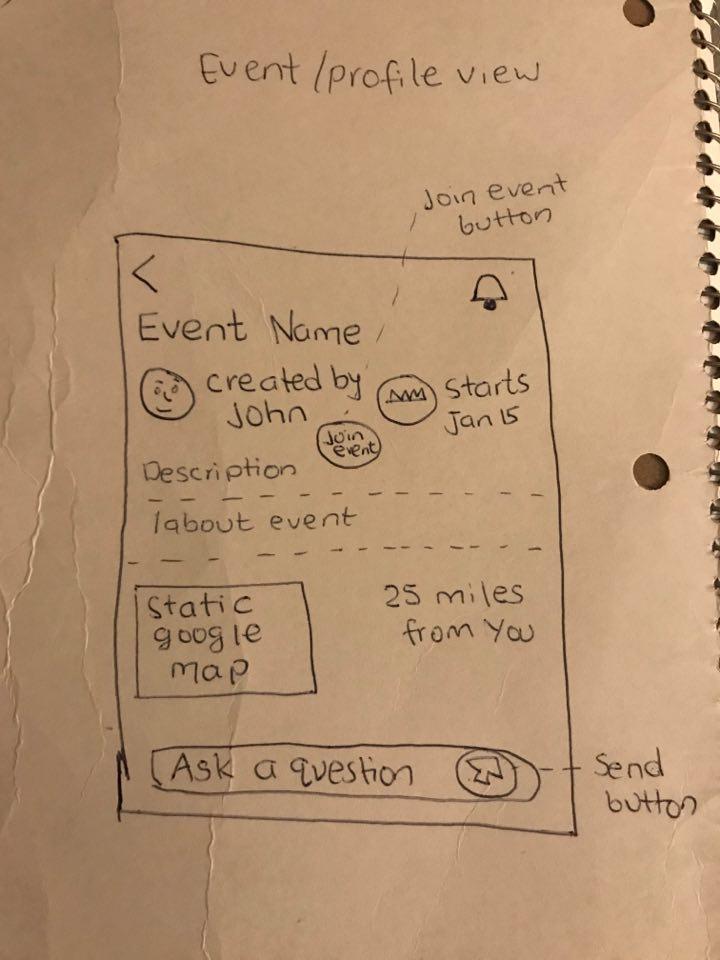 Event/profile view
Join event
button
<
Event Name
created by
John
Starts
Jan 15
Join
event
Description
/about event
Static
google
map
25 miles
from You
Ask a question
Send
button